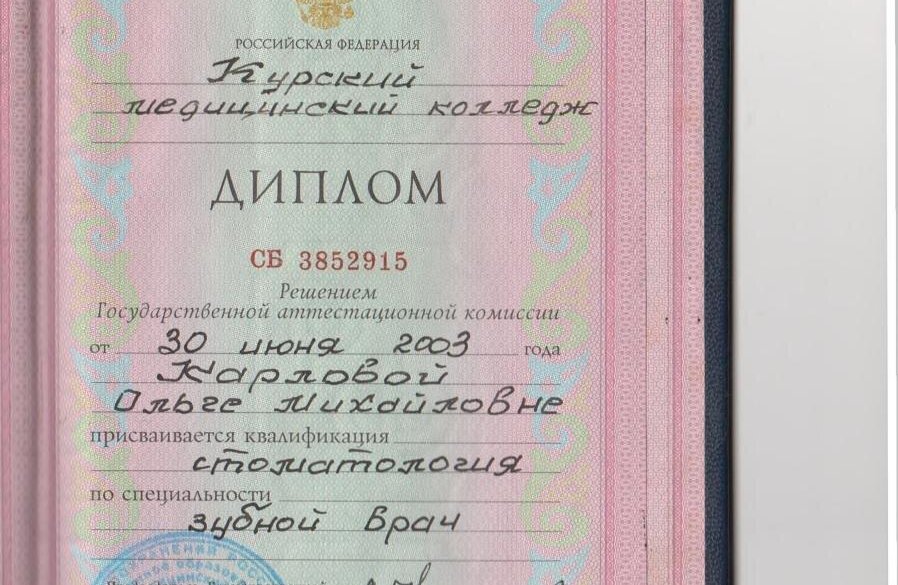 РОССИЙСКАЯ ФЕДЕРАЦИЯ
Курский
медицинский колледж
ДИПЛОМ
СБ 3852915
Решением
Государственной аттестационной комиссии
от 30 июня 2003 года
Карловой
Ольге Михайловне
присваивается квалификация
стоматология
по специальности
зубной врач